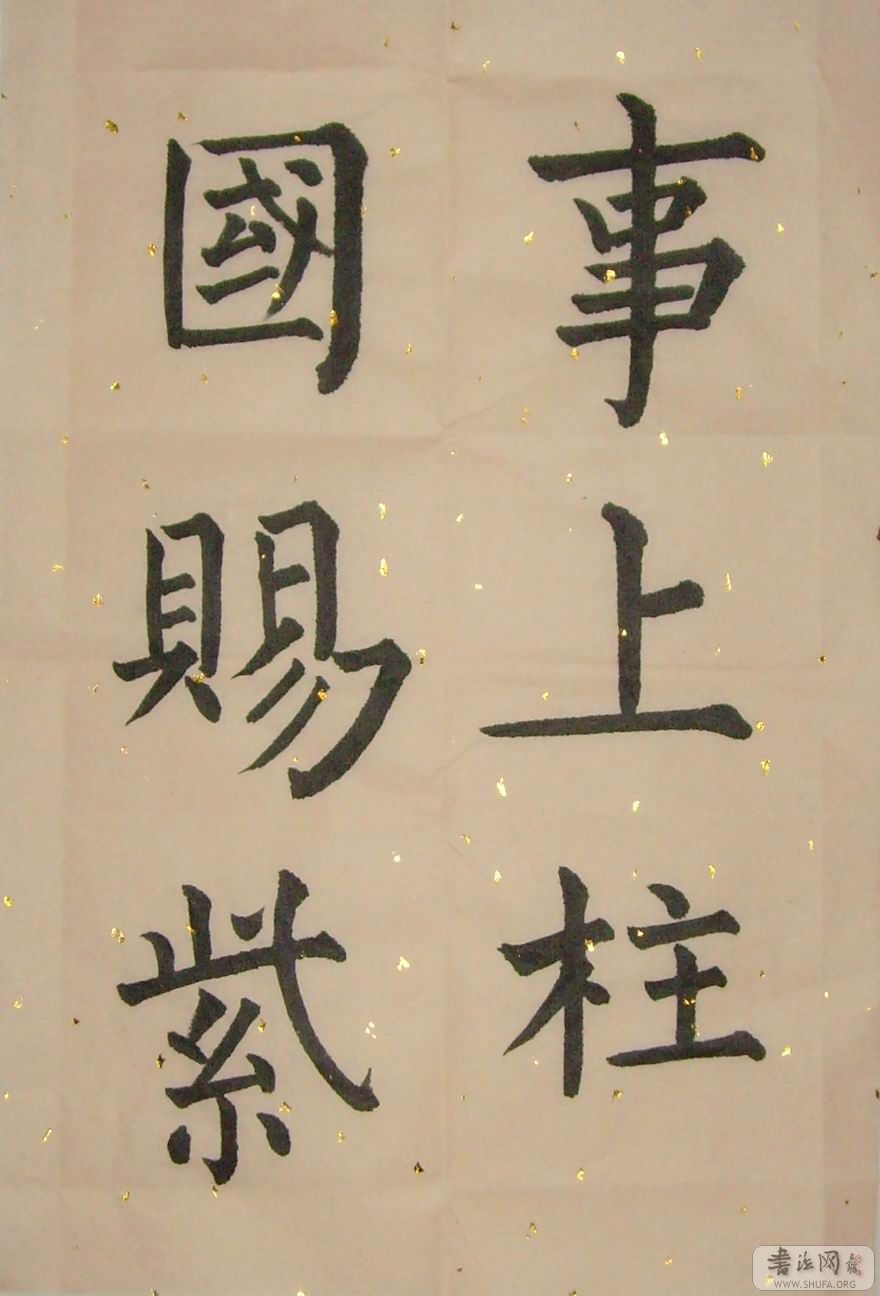 事上柱
國賜紫
書法网
WWW.SHUFA.ORG